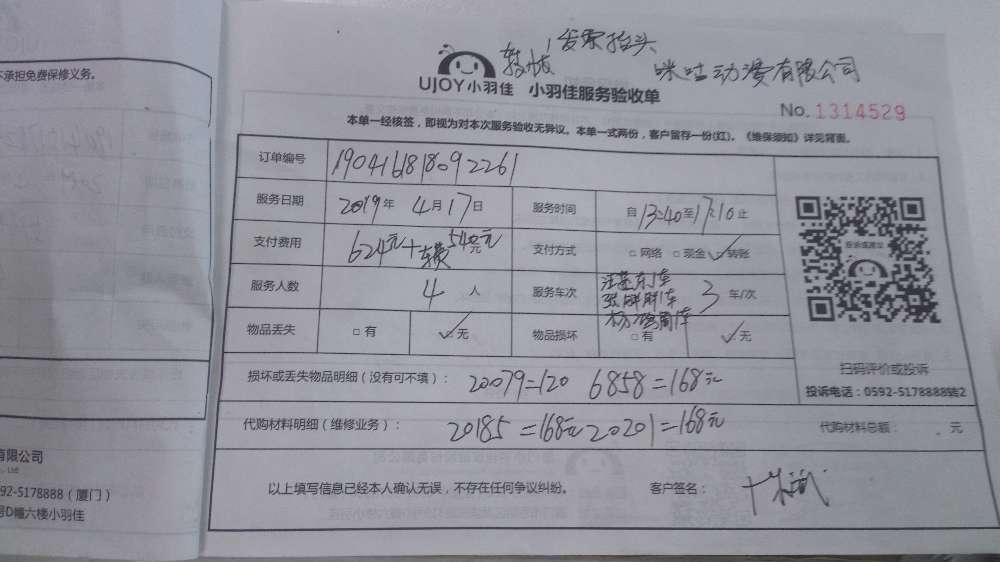 不承担免费保修义务。
转帐 发票抬头
咪咕动漫有限公司
UJOY小羽佳 小羽佳服务验收单
No. 1314529
本单一经核签，即视为对本次服务验收无异议。本单一式两份，客户留存一份(红)。《维保须知》详见背面。
订单编号 1904161818092261
服务日期 2019年 4月17日 服务时间 自13:40至17:10止
支付费用 624元+ 540元 支付方式 □网络 □现金 □转账
服务人数 4 人 服务车次 3 车/次
物品丢失 □有 □无 物品损坏 □有 □无
扫码评价或投诉
投诉电话：0592-5178888转2
损坏或丢失物品明细（没有可不填）： 20079=120 6858=168元
代购材料明细（维修业务）： 20185=168元 20201=168元 代购材料总额： 元
以上填写信息已经本人确认无误，不存在任何争议纠纷。 客户签名：
有限公司
., Ltd
592-5178888（厦门）
号D幢六楼小羽佳